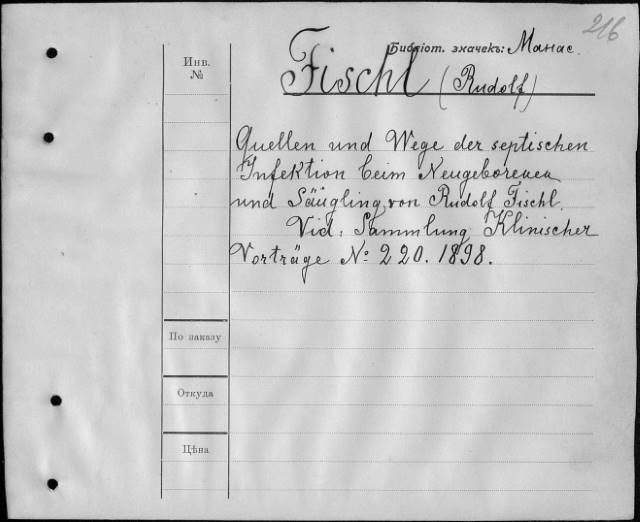 216
Библіот. значекъ: Манас.
Инв.
№
Fischl (Rudolf)
Quellen und Wege der septischen
Infektion beim Neugeborenen
und Säugling von Rudolf Fischl.
Vid: Sammlung Klinischer
Vorträge № 220. 1898.
По заказу
Откуда
Цѣна